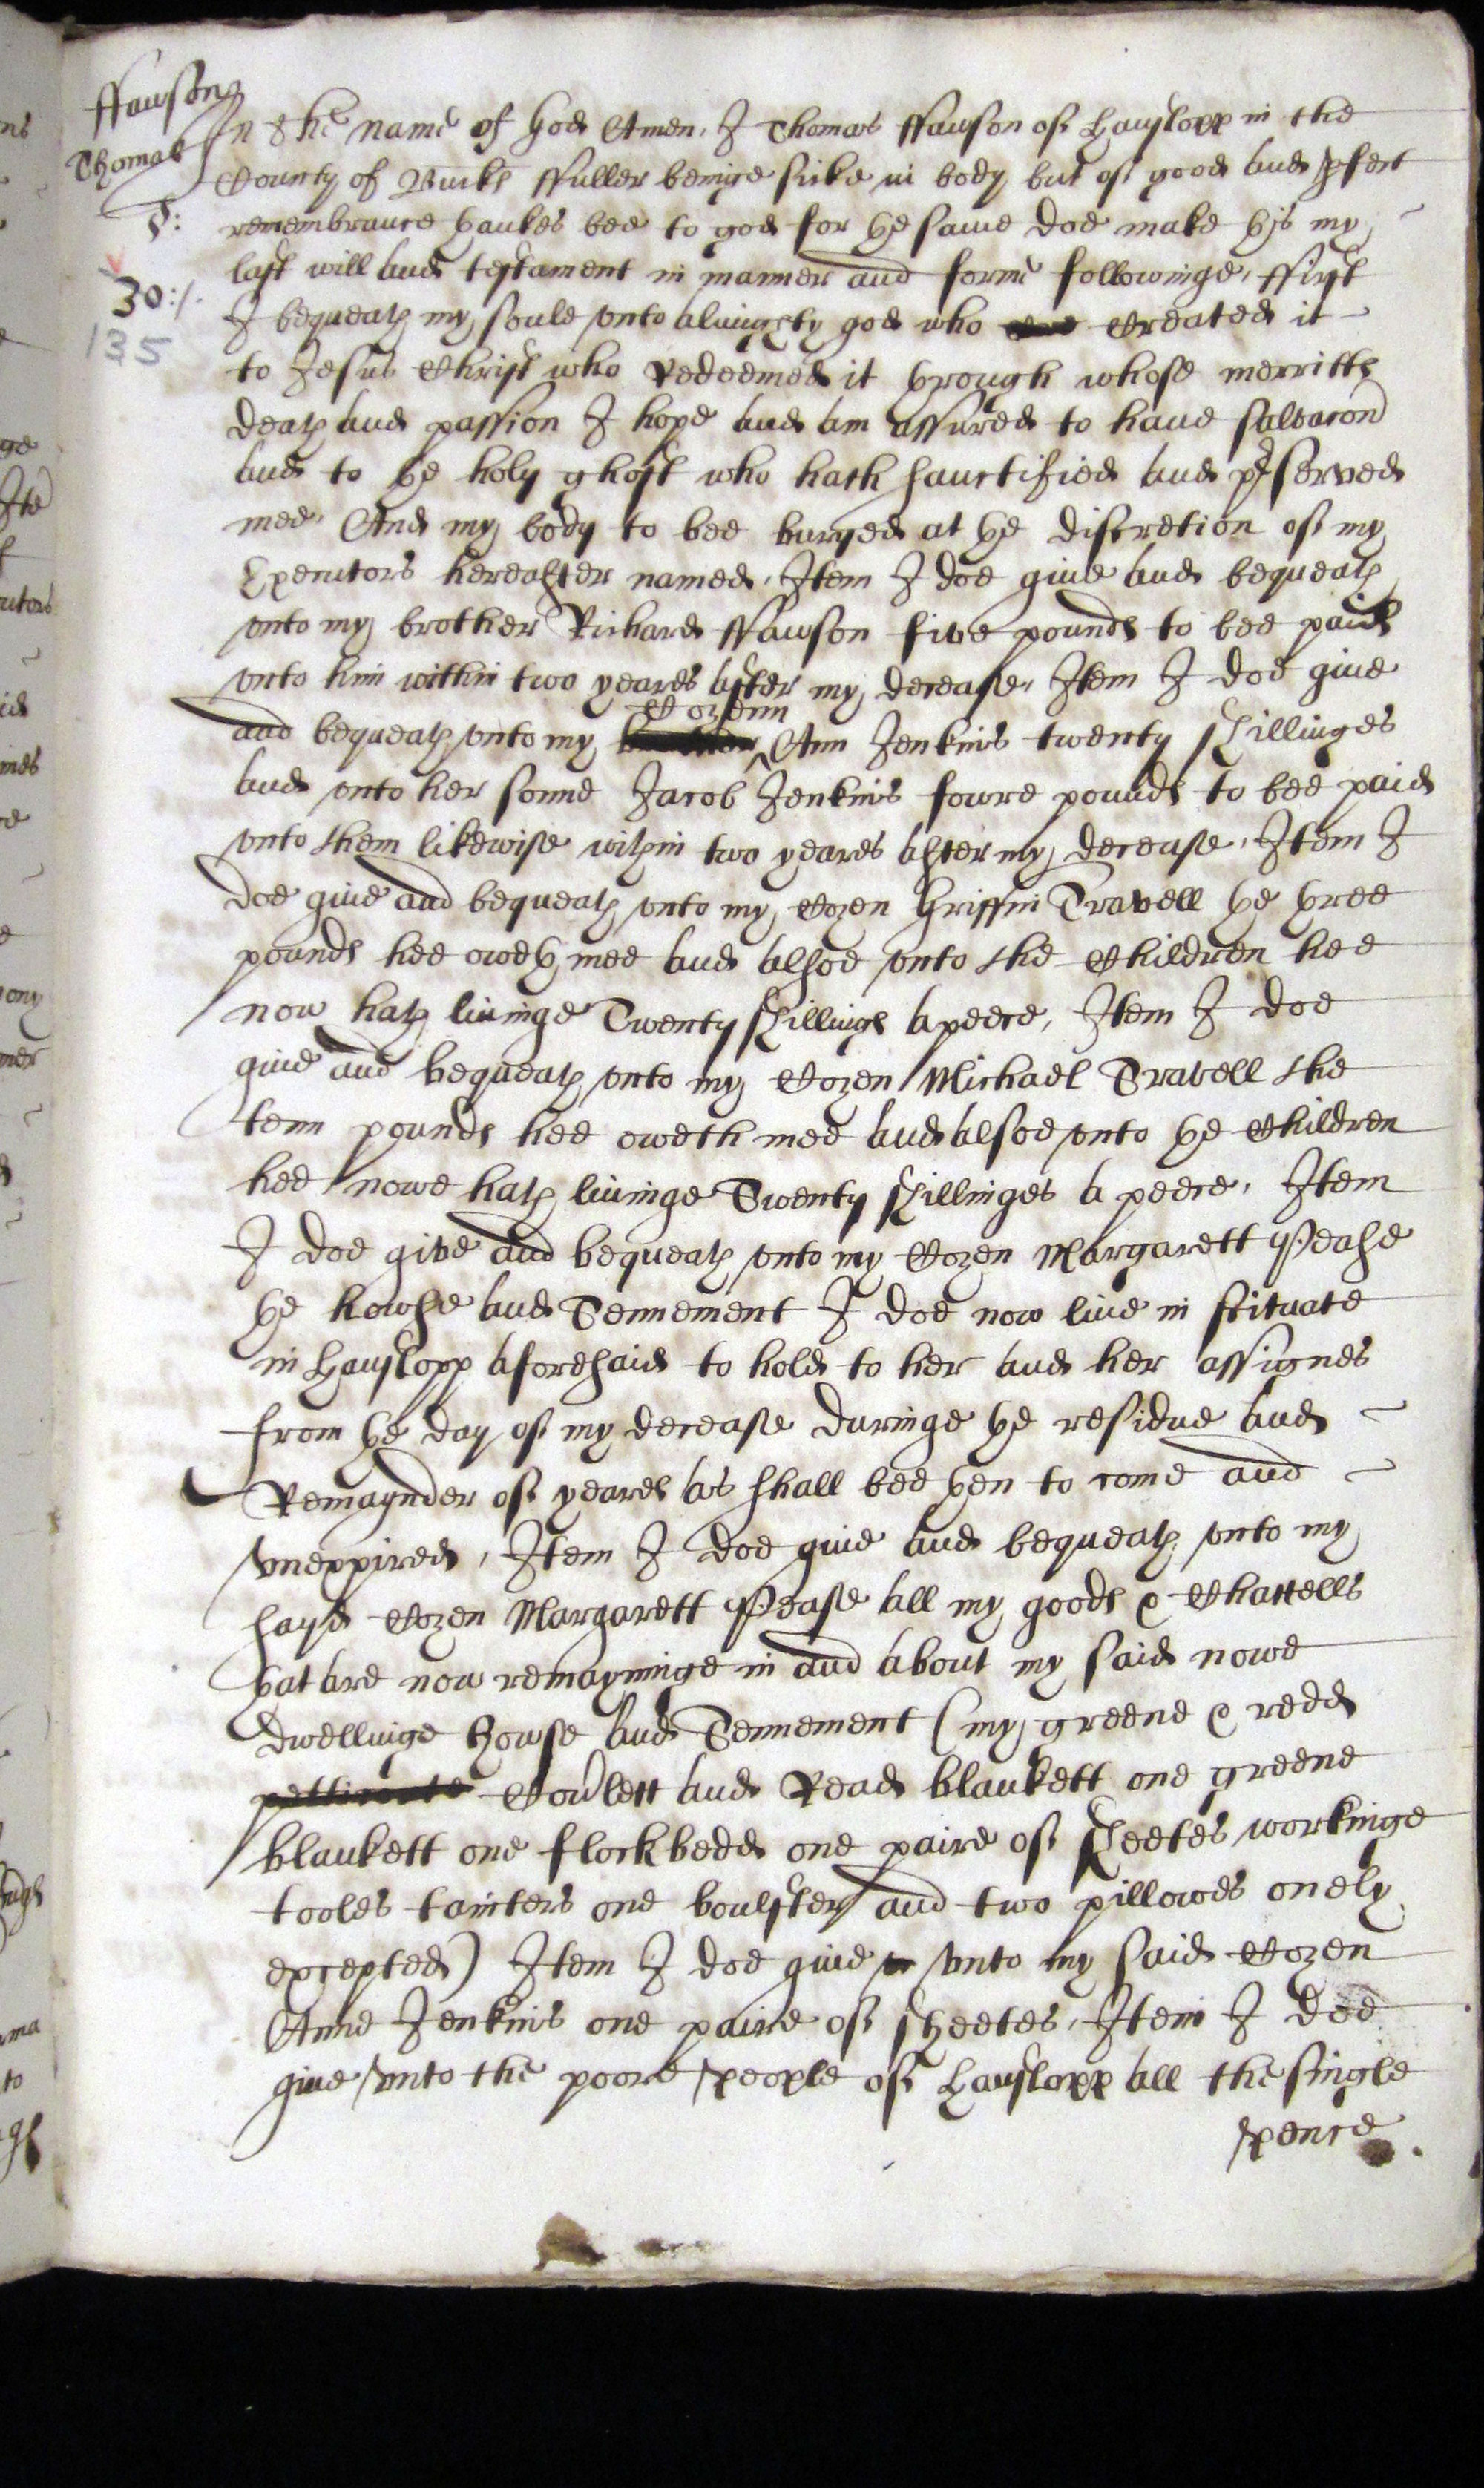 ffawson
Thomas
T:
30:/.
135
In the name of God Amen, I Thomas ffawson of Hanslopp in the
County of Buck℮ ffuller beinge sicke in body but of good and pfect
remembrance thankes bee to god for the same doe make this my
last will and testament in manner and forme followinge, ffirst
I bequeath my soule vnto almighty god who Created it
to Jesus Christ who Redeemed it through whose merritt℮
death and passion I hope and am assured to haue salvacon
and to the holy ghost who hath sanctified and pserved
mee, And my body to bee buryed at the discretion of my
Executors hereafter named, Item I doe giue and bequeath
vnto my brother Richard ffawson five pound℮ to bee paid
vnto him within two yeares after my decease, Item I doe giue
Cozenn
and bequeath vnto my ^ Ann Jenkins twenty shillinges
and vnto her sonne Jacob Jenkins fowre pound℮ to bee paid
vnto them likewise within two yeares after my decease, Item I
doe giue and bequeath vnto my Cozen Griffin Travell the three
pound℮ hee oweth mee and alsoe vnto the Children hee
now hath liuinge Twenty shilling℮ a peece, Item I doe
giue and bequeath vnto my Cozen Michael Travell the
tenn pound℮ hee oweth mee and alsoe vnto the Children
hee nowe hath liuinge Twenty shillinges a peece, Item
I doe give and bequeath vnto my Cozen Margarett Pease
the howse and Tennement I doe now liue in scituate
in Hanslopp aforesaid to hold to her and her assignes
from the day of my decease duringe the residue and
Remaynder of yeares as shall bee then to come and
vnexpired, Item I doe giue and bequeath vnto my
sayd Cozen Margarett Pease all my good℮ & Chattells
that are now remayninge in and about my said nowe
dwellinge howse and Tennement (my greene & redd
petticoate Coulett and Read blankett one greene
blankett one flockbedd one paire of sheetes workinge
tooles tainters one boulster and two pillowes onely
excepted) Item I doe giue vnto my said Cozen
Anne Jenkins one paire of sheetes, Item I doe
giue vnto the poore people of Hanslopp all the single
pence